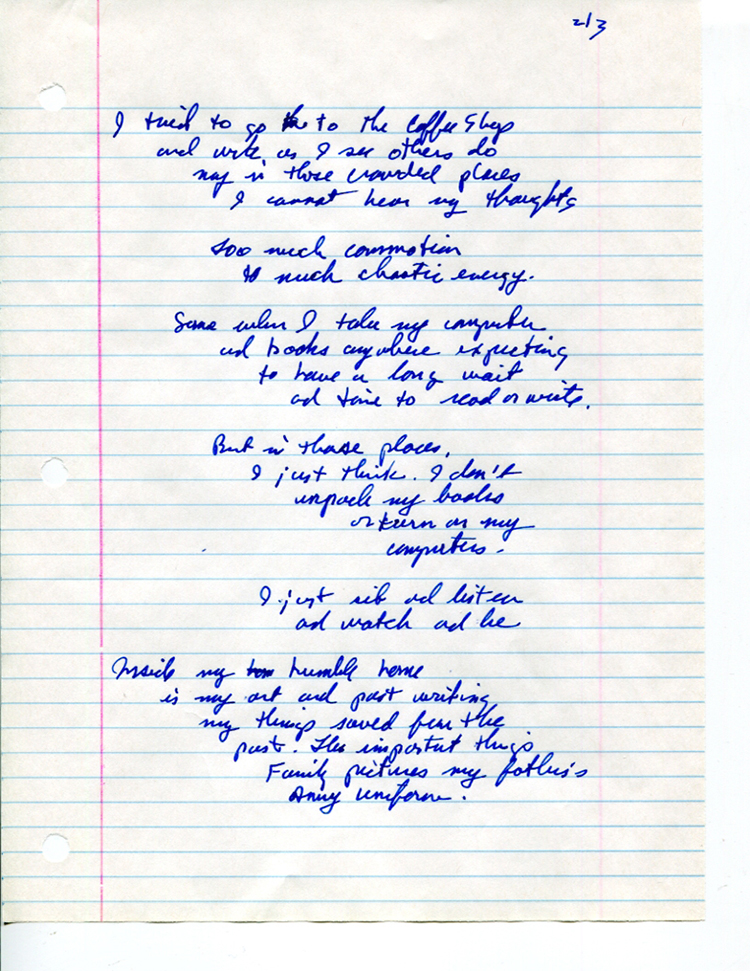 2/3
I tried to go to the Coffee Shop
and write, as I see others do
may in those crowded places
I cannot hear my thoughts
Too much commotion
to much chaotic energy.
Same when I take my computer
and books anywhere expecting
to have a long wait
and time to read or write.
But in those places,
I just think. I don't
unpack my books
or turn on my
computers.
I just sit and listen
and watch and be
Inside my humble home
is my art and past writing
my things saved from the
past. The important things
Family pictures my father's
Army uniform.